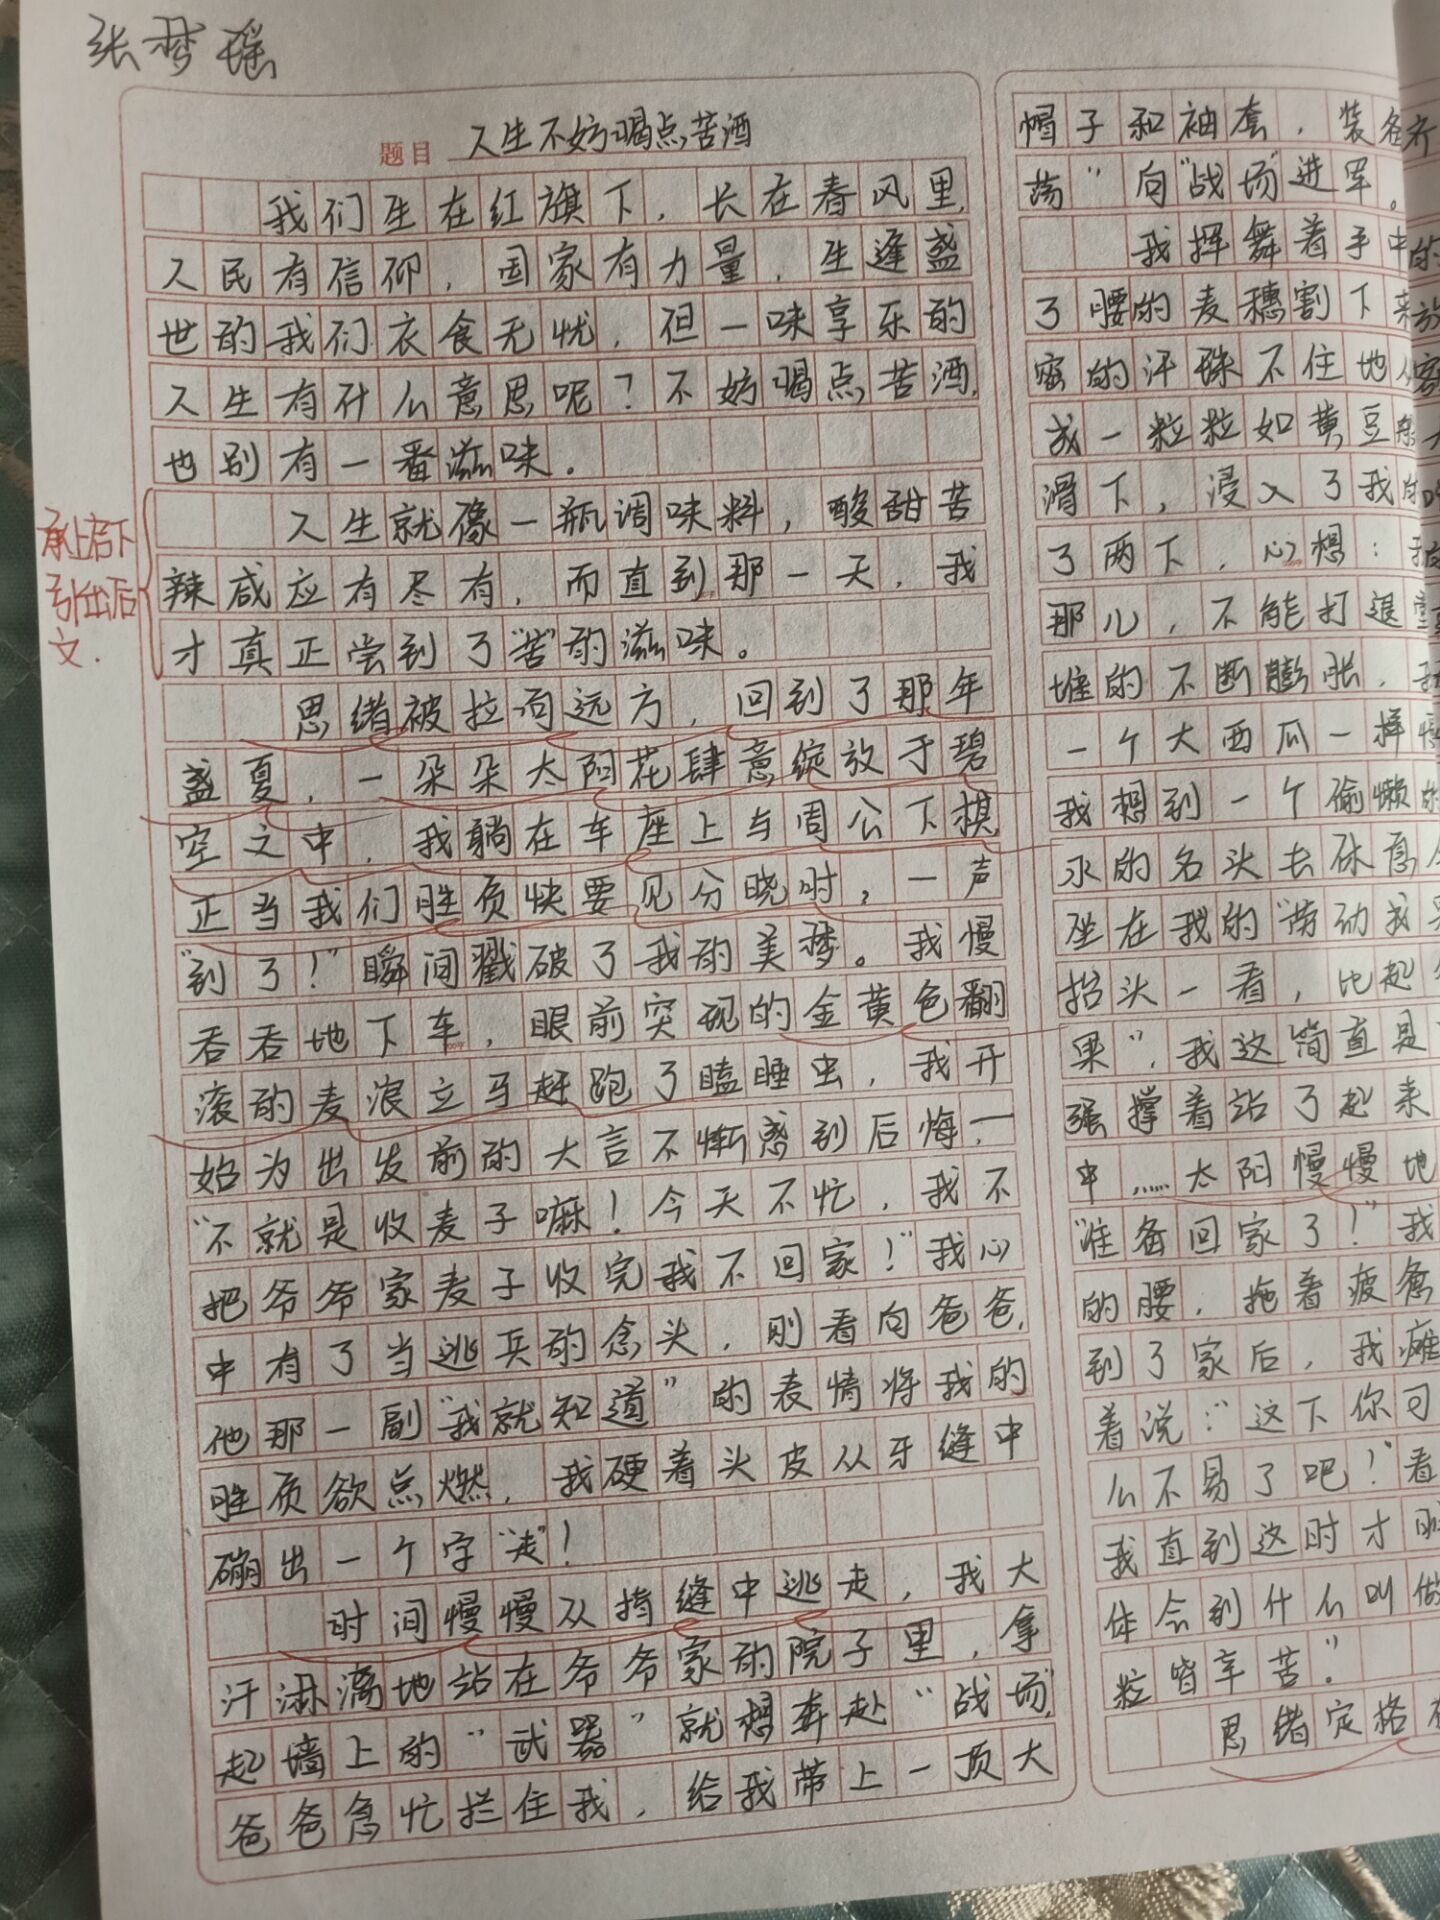 张梦瑶
题目 人生不妨喝点苦酒
我们生在红旗下，长在春风里，
人民有信仰，国家有力量，生逢盛
世的我们衣食无忧，但一味享乐的
人生有什么意思呢？不妨喝点苦酒，
也别有一番滋味。
承上启下
引出后
文.
人生就像一瓶调味料，酸甜苦
辣咸应有尽有，而直到那一天，我
才真正尝到了“苦”的滋味。
思绪被拉向远方，回到了那年
盛夏，一朵朵太阳花肆意绽放于碧
空之中，我躺在车座上与周公下棋，
正当我们胜负快要见分晓时，一声
“到了！”瞬间戳破了我的美梦。我慢
吞吞地下车，眼前突现的金黄色翻
滚的麦浪立马赶跑了瞌睡虫，我开
始为出发前的大言不惭感到后悔一
“不就是收麦子嘛！今天不忙，我不
把爷爷家麦子收完我不回家！”我心
中有了当逃兵的念头，刚看向爸爸，
他那一副“我就知道”的表情将我的
胜负欲点燃，我硬着头皮从牙缝中
蹦出一个字“走”！
时间慢慢从指缝中逃走，我大
汗淋漓地站在爷爷家的院子里，拿
起墙上的“武器”就想奔赴“战场”，
爸爸急忙拦住我，给我带上一顶大
帽子和袖套，装备齐
荡”向“战场”进军。
我挥舞着手中的
了腰的麦穗割下来放
密的汗珠不住地从
成一粒粒如黄豆般大
滑下，浸入了我的
了两下，心想：我
那儿，不能打退堂
堆的不断膨胀，我
一个大西瓜一样慢
我想到一个偷懒的
水的名头去休息
坐在我的“劳动成果
抬头一看，比起
果”，我这简直是
强撑着站了起来
中……太阳慢慢地
“准备回家了！”我
的腰，拖着疲惫
到了家后，我瘫
着说：“这下你可
么不易了吧！”看
我直到这时才明
体会到什么叫做
粒皆辛苦。”
思绪定格在